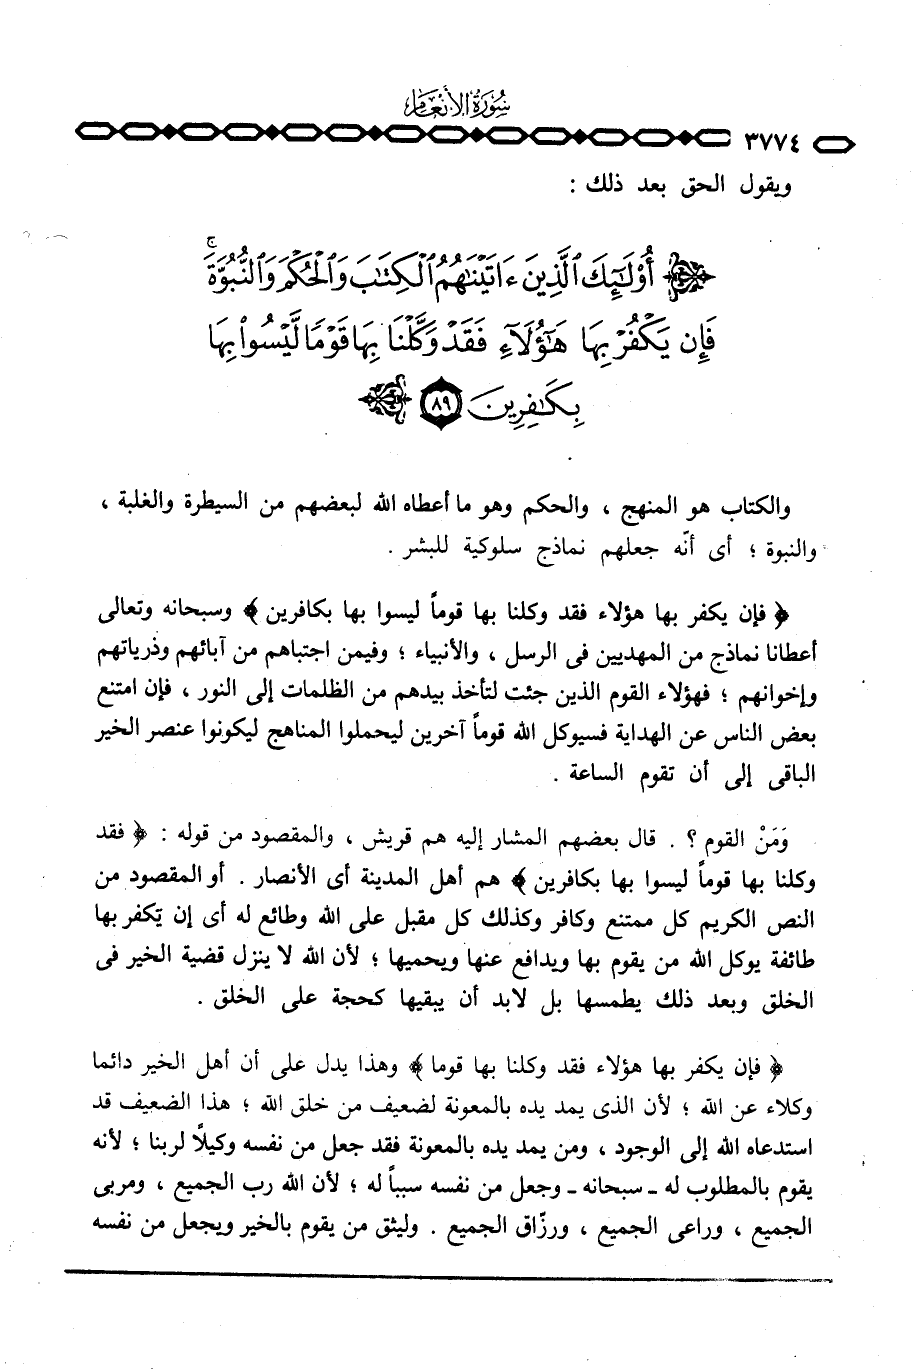 سورة الأنعام
٣٧٧٤
ويقول الحق بعد ذلك :
أُوْلَٰٓئِكَ ٱلَّذِينَ ءَاتَيْنَٰهُمُ ٱلْكِتَٰبَ وَٱلْحُكْمَ وَٱلنُّبُوَّةَۚ
فَإِن يَكْفُرْ بِهَا هَٰٓؤُلَآءِ فَقَدْ وَكَّلْنَا بِهَا قَوْمًا لَّيْسُوا۟ بِهَا
بِكَٰفِرِينَ ٨٩
والكتاب هو المنهج ، والحكم وهو ما أعطاه الله لبعضهم من السيطرة والغلبة ،
والنبوة ؛ أى أنّه جعلهم نماذج سلوكية للبشر .
﴿ فإن يكفر بها هؤلاء فقد وكلنا بها قوماً ليسوا بها بكافرين ﴾ وسبحانه وتعالى
أعطانا نماذج من المهديين فى الرسل ، والأنبياء ؛ وفيمن اجتباهم من آبائهم وذرياتهم
وإخوانهم ؛ فهؤلاء القوم الذين جئت لتأخذ بيدهم من الظلمات إلى النور ، فإن امتنع
بعض الناس عن الهداية فسيوكل الله قوماً آخرين ليحملوا المناهج ليكونوا عنصر الخير
الباقى إلى أن تقوم الساعة .
وَمَنْ القوم ؟ . قال بعضهم المشار إليه هم قريش ، والمقصود من قوله : ﴿ فقد
وكلنا بها قوماً ليسوا بها بكافرين ﴾ هم أهل المدينة أى الأنصار . أو المقصود من
النص الكريم كل ممتنع وكافر وكذلك كل مقبل على الله وطائع له أى إن يَكفر بها
طائفة يوكل الله من يقوم بها ويدافع عنها ويحميها ؛ لأن الله لا ينزل قضية الخير فى
الخلق وبعد ذلك يطمسها بل لابد أن يبقيها كحجة على الخلق .
﴿ فإن يكفر بها هؤلاء فقد وكلنا بها قوما ﴾ وهذا يدل على أن أهل الخير دائما
وكلاء عن الله ؛ لأن الذى يمد يده بالمعونة لضعيف من خلق الله ؛ هذا الضعيف قد
استدعاه الله إلى الوجود ، ومن يمد يده بالمعونة فقد جعل من نفسه وكيلاً لربنا ؛ لأنه
يقوم بالمطلوب له ـ سبحانه ـ وجعل من نفسه سبباً له ؛ لأن الله رب الجميع ، ومربى
الجميع ، وراعى الجميع ، ورزّاق الجميع . وليثق من يقوم بالخير ويجعل من نفسه